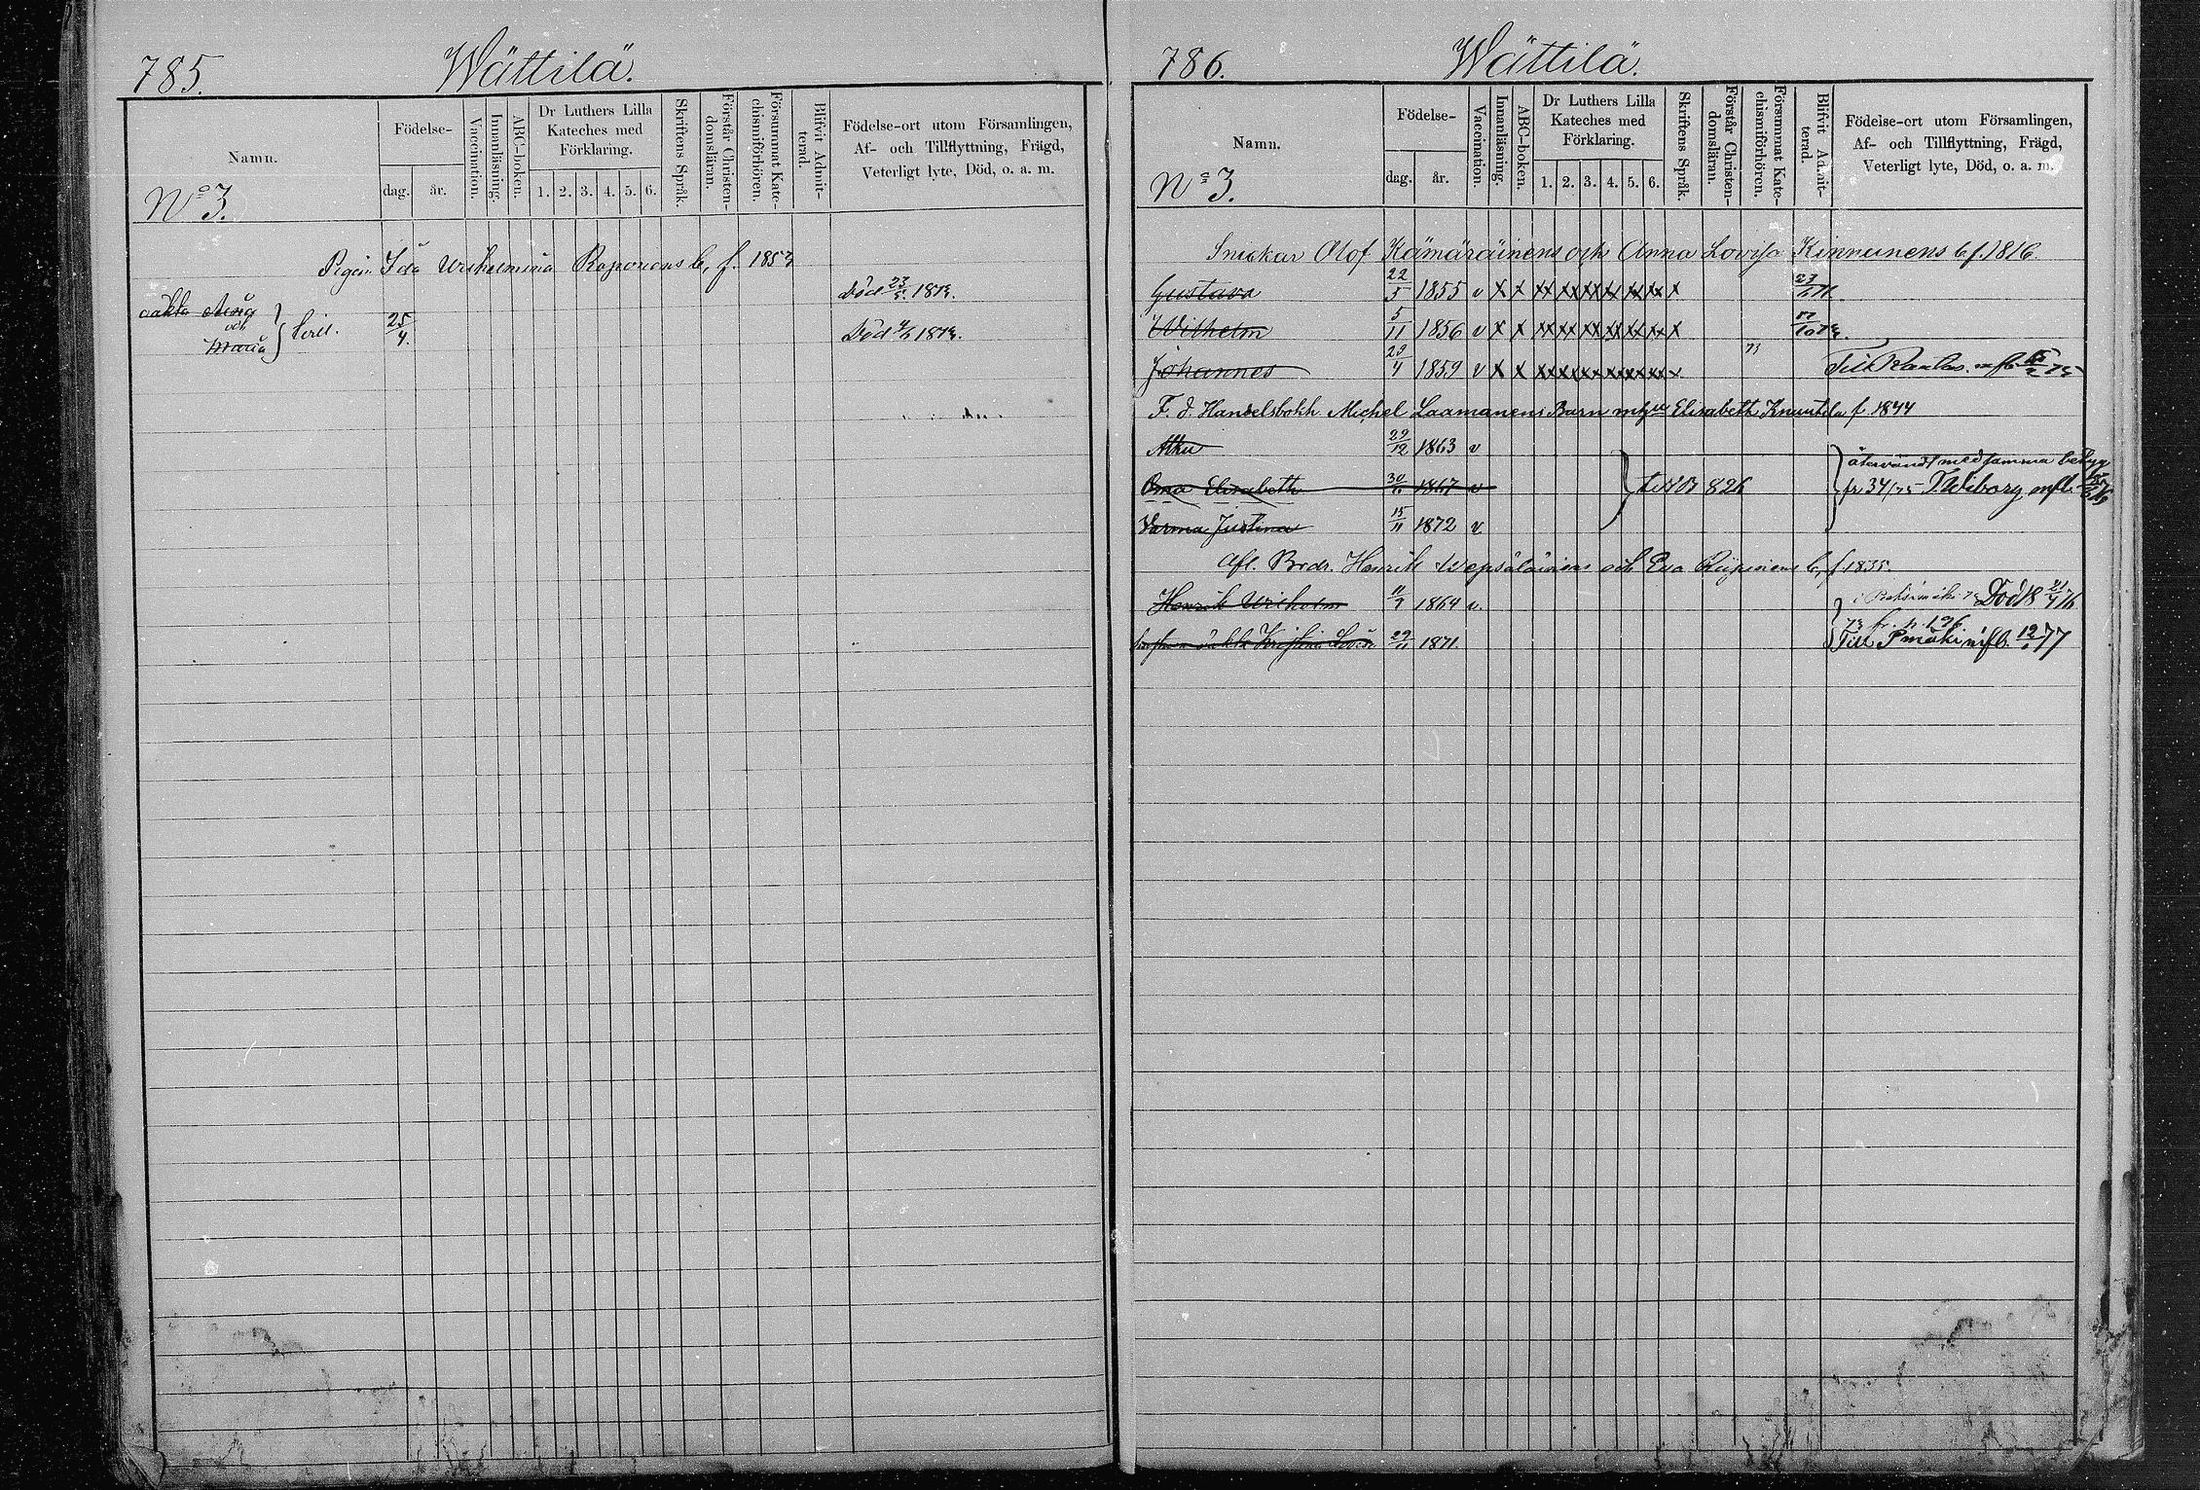 785. Wättilä.
Namn.
Födelse-
dag. år.
Vaccination.
Innanläsning.
ABC-boken.
Dr Luthers Lilla
Kateches med
Förklaring.
1. 2. 3. 4. 5. 6.
Skriftens Språk.
Förstår Christen-
domsläran.
Försummat Kate-
chismiförhören.
Blifvit Admit-
terad.
Födelse-ort utom Församlingen,
Af- och Tillflyttning, Frägd,
Veterligt lyte, Död, o. a. m.
No 3.
Pigan Ida Wilhelmina Roponens b, f. 1853
oäkta Anna Död 23/5 1873.
och
Maria 25/4. Död 1873.
786. Wättilä.
Namn.
Födelse-
dag. år.
Vaccination.
Innanläsning.
ABC-boken.
Dr Luthers Lilla
Kateches med
Förklaring.
1. 2. 3. 4. 5. 6.
Skriftens Språk.
Förstår Christen-
domsläran.
Försummat Kate-
chismiförhören.
Blifvit Admit-
terad.
Födelse-ort utom Församlingen,
Af- och Tillflyttning, Frägd,
Veterligt lyte, Död, o. a. m.
No 3.
Snickar Olof Kämäräinens och Anna Lovisa Kinnunens b f. 1816.
Gustava 22/5 1855 v x x xx xx xx xx xx xx x
Wilhelm 5/11 1856 v x x xx xx xx xx xx xx x
Johannes 29/4 1859 v x x xx xx xx xx xx xx Till
F. d. Handelsbokh. Michel Laamanens Barn m Elisabeth Knuutila f 1844
29/12 1863 v
återvändt med samma betyg
Elisabeth 30/6 1867 v till 826 fr 34/75 T. Wiborg mfl.
Varma Justina 15/11 1872 v
Afl. Brdr. Henrik Wepsäläinens och Eva b, f 1835.
Henrik Wilhelm 11/9 1864 v. Död
73 fr. p. 196.
oäkta Kristina Lovisa 29/11 1871. Till Pmäki mfl. 77